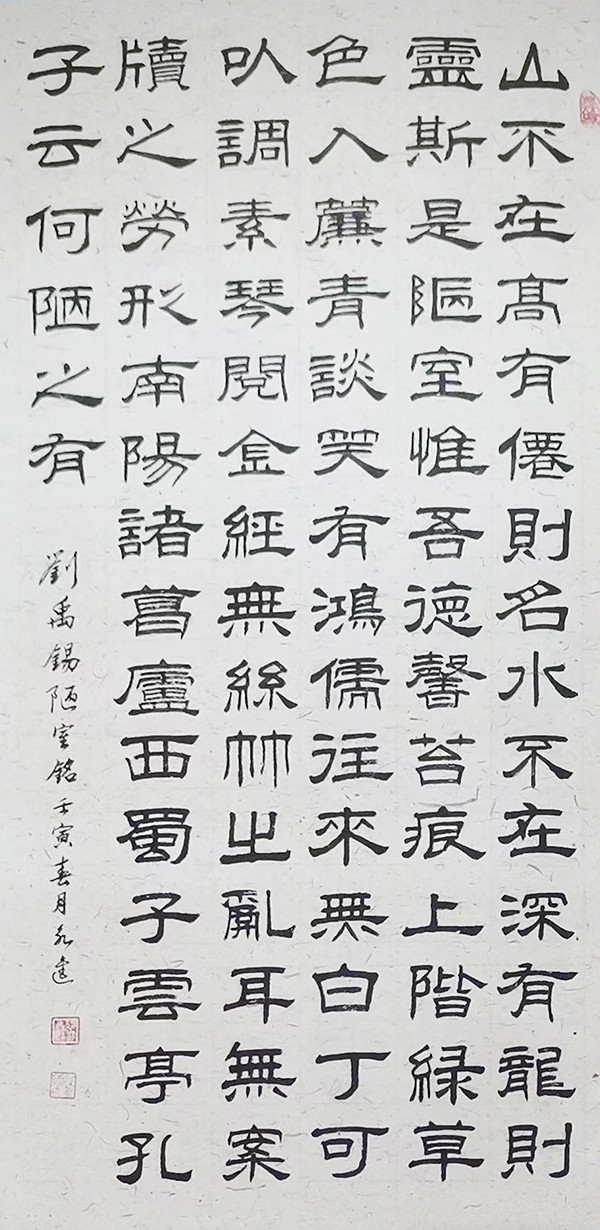 山不在髙有僊則名水不在深有龍則
靈斯是陋室惟吾德馨苔痕上階緑草
色入簾青談笑有鴻儒往來無白丁可
以調素琴閱金經無絲竹之亂耳無案
牘之勞形南陽諸葛廬西蜀子雲亭孔
子云何陋之有
劉禹錫陋室銘壬寅春月